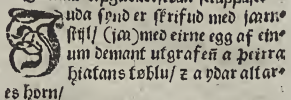 Juda synd er skrifud med jaarn-
styl/ (ja) med eirne egg af ein-
um demant utgrafen a þeirra
hiatans tøblu/ z a ydar altar-
es horn/